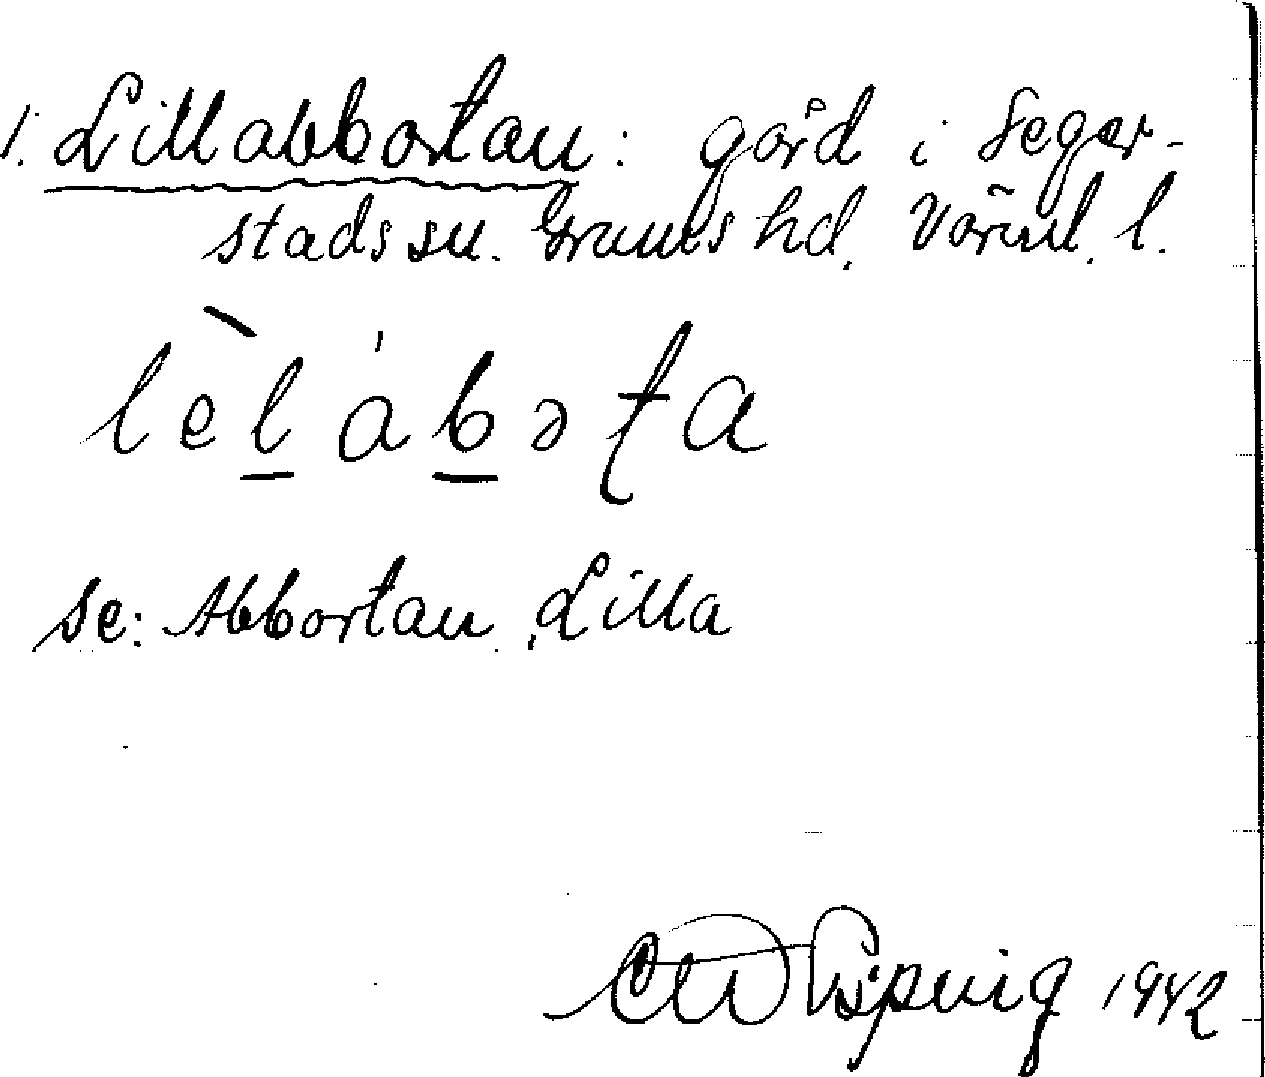 1. Lillabbortan: gård i Seger-
stads sn. Grums hd. Värml. l.
lèl ábəʈa
se: Abbortan, Lilla
1942